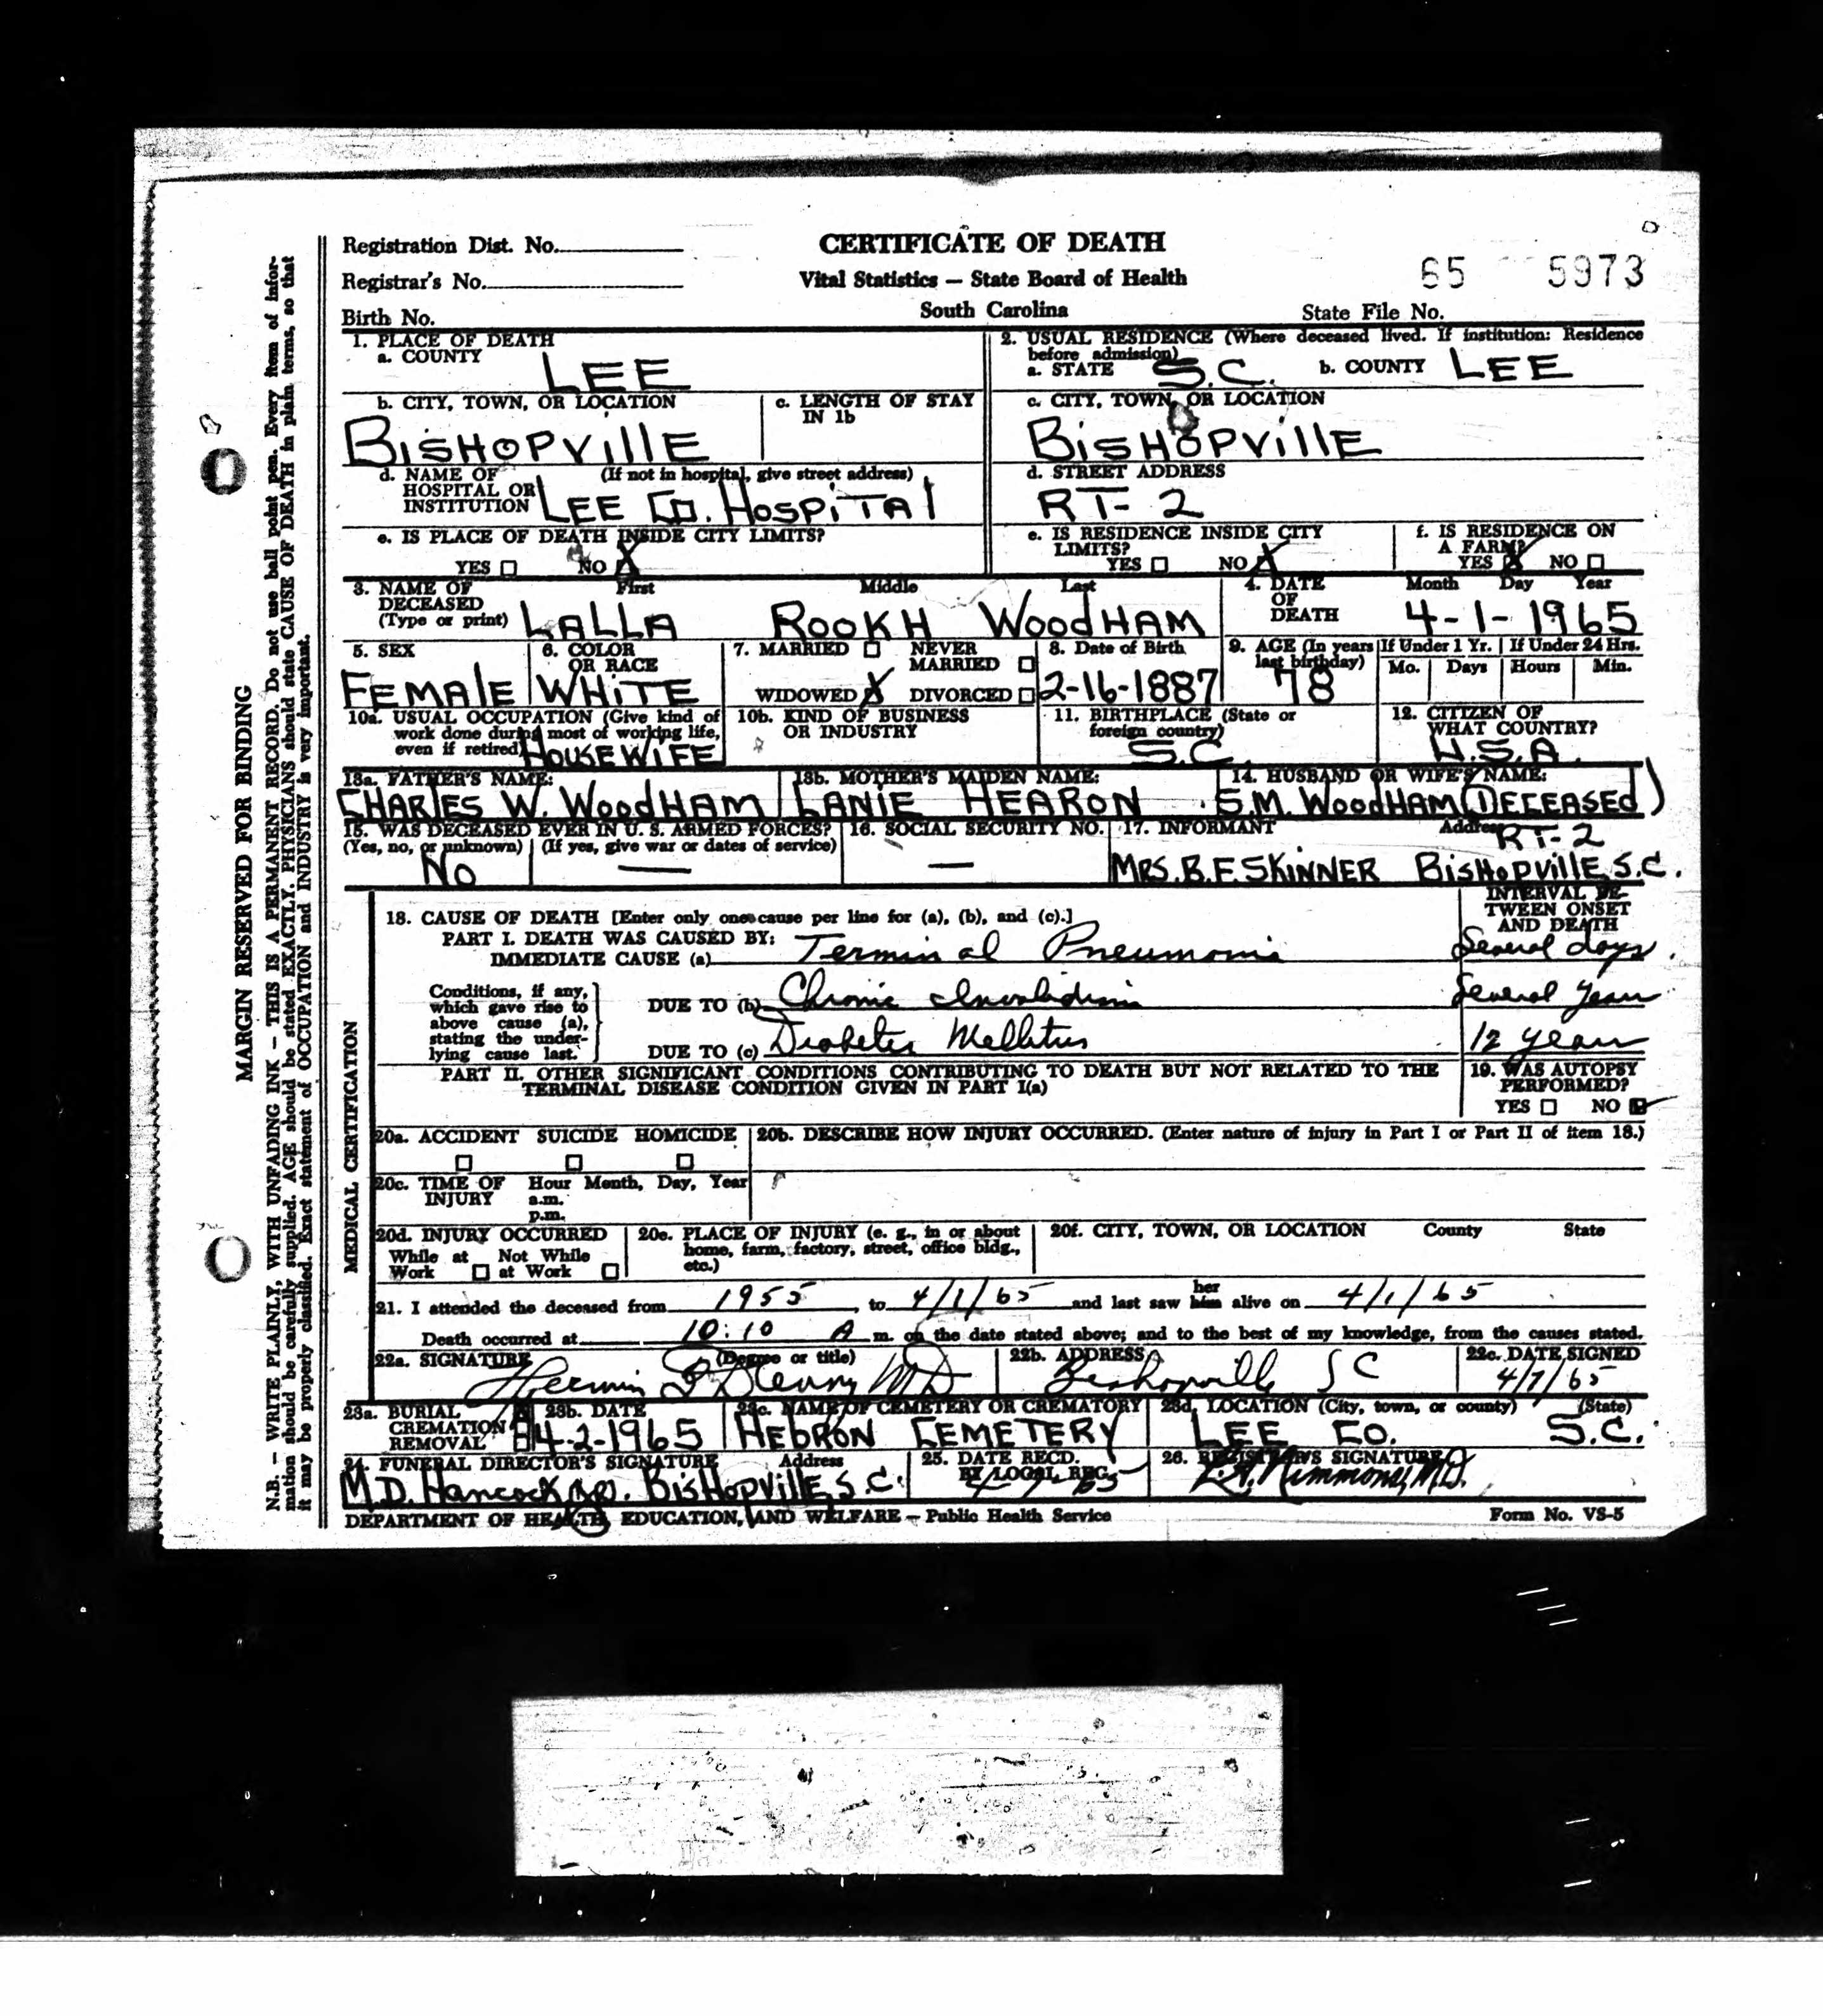 Registration Dist. No.
CERTIFICATE OF DEATH
Registrar's No.
Vital Statistics — State Board of Health
65 5973
Birth No.
South Carolina
State File No.
1. PLACE OF DEATH
a. COUNTY
LEE
2. USUAL RESIDENCE (Where deceased lived. If institution: Residence
before admission)
a. STATE S.C. b. COUNTY LEE
b. CITY, TOWN, OR LOCATION
BISHOPVIllE
c. LENGTH OF STAY
IN 1b
c. CITY, TOWN, OR LOCATION
BISHOPVIllE
d. NAME OF (If not in hospital, give street address)
HOSPITAL OR
INSTITUTION LEE CO. HOSPITAl
d. STREET ADDRESS
RT- 2
e. IS PLACE OF DEATH INSIDE CITY LIMITS?
YES ☐ NO X
e. IS RESIDENCE INSIDE CITY
LIMITS?
YES ☐ NO X
f. IS RESIDENCE ON
A FARM?
YES X NO ☐
3. NAME OF
DECEASED
(Type or print)
First Middle Last
LALLA ROOKH WOODHAM
4. DATE
OF
DEATH
Month Day Year
4-1-1965
5. SEX
FEMAlE
6. COLOR
OR RACE
WHITE
7. MARRIED ☐ NEVER
MARRIED ☐
WIDOWED X DIVORCED ☐
8. Date of Birth
2-16-1887
9. AGE (In years
last birthday)
78
If Under 1 Yr. If Under 24 Hrs.
Mo. Days Hours Min.
10a. USUAL OCCUPATION (Give kind of
work done during most of working life,
even if retired) HOUSEWIFE
10b. KIND OF BUSINESS
OR INDUSTRY
11. BIRTHPLACE (State or
foreign country)
S.C.
12. CITIZEN OF
WHAT COUNTRY?
U.S.A.
13a. FATHER'S NAME:
CHARLES W. WOODHAM
13b. MOTHER'S MAIDEN NAME:
LANIE HEARON
14. HUSBAND OR WIFE'S NAME:
S.M. WOODHAM (DECEASED)
15. WAS DECEASED EVER IN U. S. ARMED FORCES?
(Yes, no, or unknown) (If yes, give war or dates of service)
No —
16. SOCIAL SECURITY NO.
—
17. INFORMANT Address
RT-2
MRS. B.F. SKINNER BISHOPVILLE, S.C.
INTERVAL BE-
TWEEN ONSET
AND DEATH
18. CAUSE OF DEATH [Enter only one cause per line for (a), (b), and (c).]
PART I. DEATH WAS CAUSED BY:
IMMEDIATE CAUSE (a) Terminal Pneumonia Several days.
Conditions, if any,
which gave rise to
above cause (a),
stating the under-
lying cause last.
DUE TO (b) Chronic Invalidism Several years
DUE TO (c) Diabetes Mellitus 12 years
PART II. OTHER SIGNIFICANT CONDITIONS CONTRIBUTING TO DEATH BUT NOT RELATED TO THE
TERMINAL DISEASE CONDITION GIVEN IN PART I(a)
19. WAS AUTOPSY
PERFORMED?
YES ☐ NO ☑
20a. ACCIDENT SUICIDE HOMICIDE
☐ ☐ ☐
20b. DESCRIBE HOW INJURY OCCURRED. (Enter nature of injury in Part I or Part II of item 18.)
20c. TIME OF Hour Month, Day, Year
INJURY a.m.
p.m.
20d. INJURY OCCURRED
While at Not While
Work ☐ at Work ☐
20e. PLACE OF INJURY (e. g., in or about
home, farm, factory, street, office bldg.,
etc.)
20f. CITY, TOWN, OR LOCATION County State
21. I attended the deceased from 1955, to 4/1/65 and last saw her him alive on 4/1/65
Death occurred at 10:10 A m. on the date stated above; and to the best of my knowledge, from the causes stated.
22a. SIGNATURE (Degree or title)
MD
22b. ADDRESS
Bishopville SC
22c. DATE SIGNED
4/7/65
23a. BURIAL
CREMATION
REMOVAL
23b. DATE
4-2-1965
23c. NAME OF CEMETERY OR CREMATORY
HEBRON CEMETERY
23d. LOCATION (City, town, or county) (State)
LEE CO. S.C.
24. FUNERAL DIRECTOR'S SIGNATURE Address
M.D. Hancock BISHOPVILLE, S.C.
25. DATE RECD.
BY LOCAL REG.
4-7-65
26. REGISTRAR'S SIGNATURE
DEPARTMENT OF HEALTH, EDUCATION, AND WELFARE — Public Health Service
Form No. VS-5
MEDICAL CERTIFICATION
MARGIN RESERVED FOR BINDING
N.B. — WRITE PLAINLY, WITH UNFADING INK — THIS IS A PERMANENT RECORD. Do not use ball point pen. Every item of infor-
mation should be carefully supplied. AGE should be stated EXACTLY. PHYSICIANS should state CAUSE OF DEATH in plain terms, so that
it may be properly classified. Exact statement of OCCUPATION and INDUSTRY is very important.